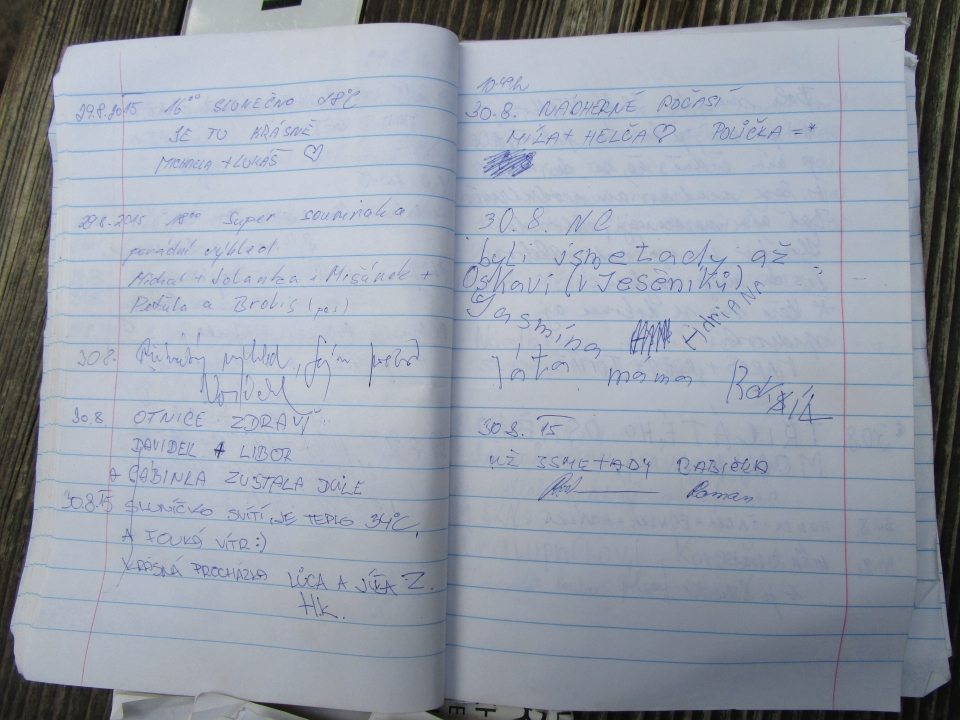 29.8.2015 16⁰⁰ SLUNEČNO 28°C
JE TU KRÁSNĚ
MICHAELA + LUKÁŠ ♡
29.8.2015 18⁰⁰ Super
parádní výhled
Michal + Jolanka + Míšánek +
Petula a Brolis (psi)
30.8. výhled,
30.8. OTNICE ZDRAVÍ
DAVÍDEK A LIBOR
A GÁBINKA ZŮSTALA DOLE
30.8.15 SLUNÍČKO SVÍTÍ, JE TEPLO 34°C,
A FOUKÁ VÍTR :)
KRÁSNÁ PROCHÁZKA LÚCA A JÍŘA Z.
H.K.
10.49h
30.8. NÁDHERNÉ POČASÍ
MÍLA + HELČA ♡ POLIČKA =*
30.8. NE
byli jsme tady až
Oskaví (v Jeseníků)
Jasmína ADRIANA
táta mama
30.8. 15
UŽ JSME TADY BABIČKA
Roman